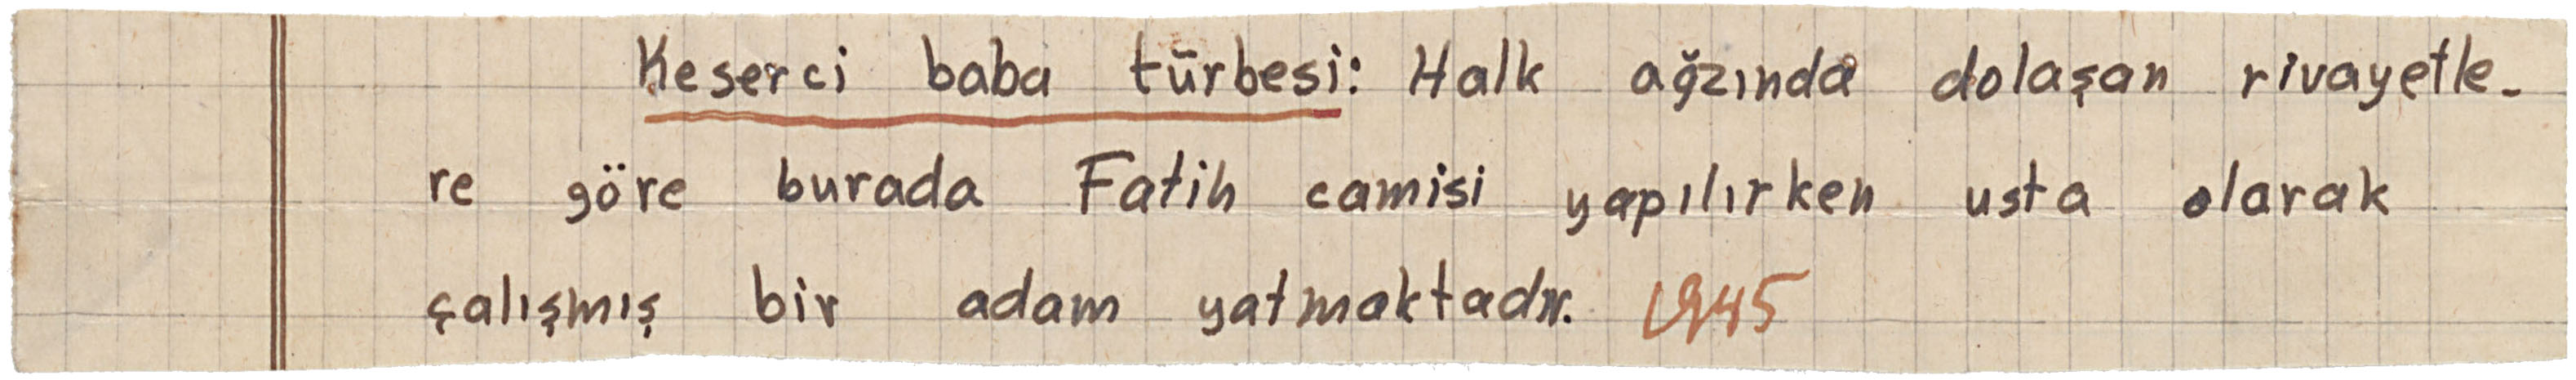 Keserci baba türbesi: Halk ağzında dolaşan rivayetle-
re göre burada Fatih camisi yapılırken usta olarak
çalışmış bir adam yatmaktadır. 1945